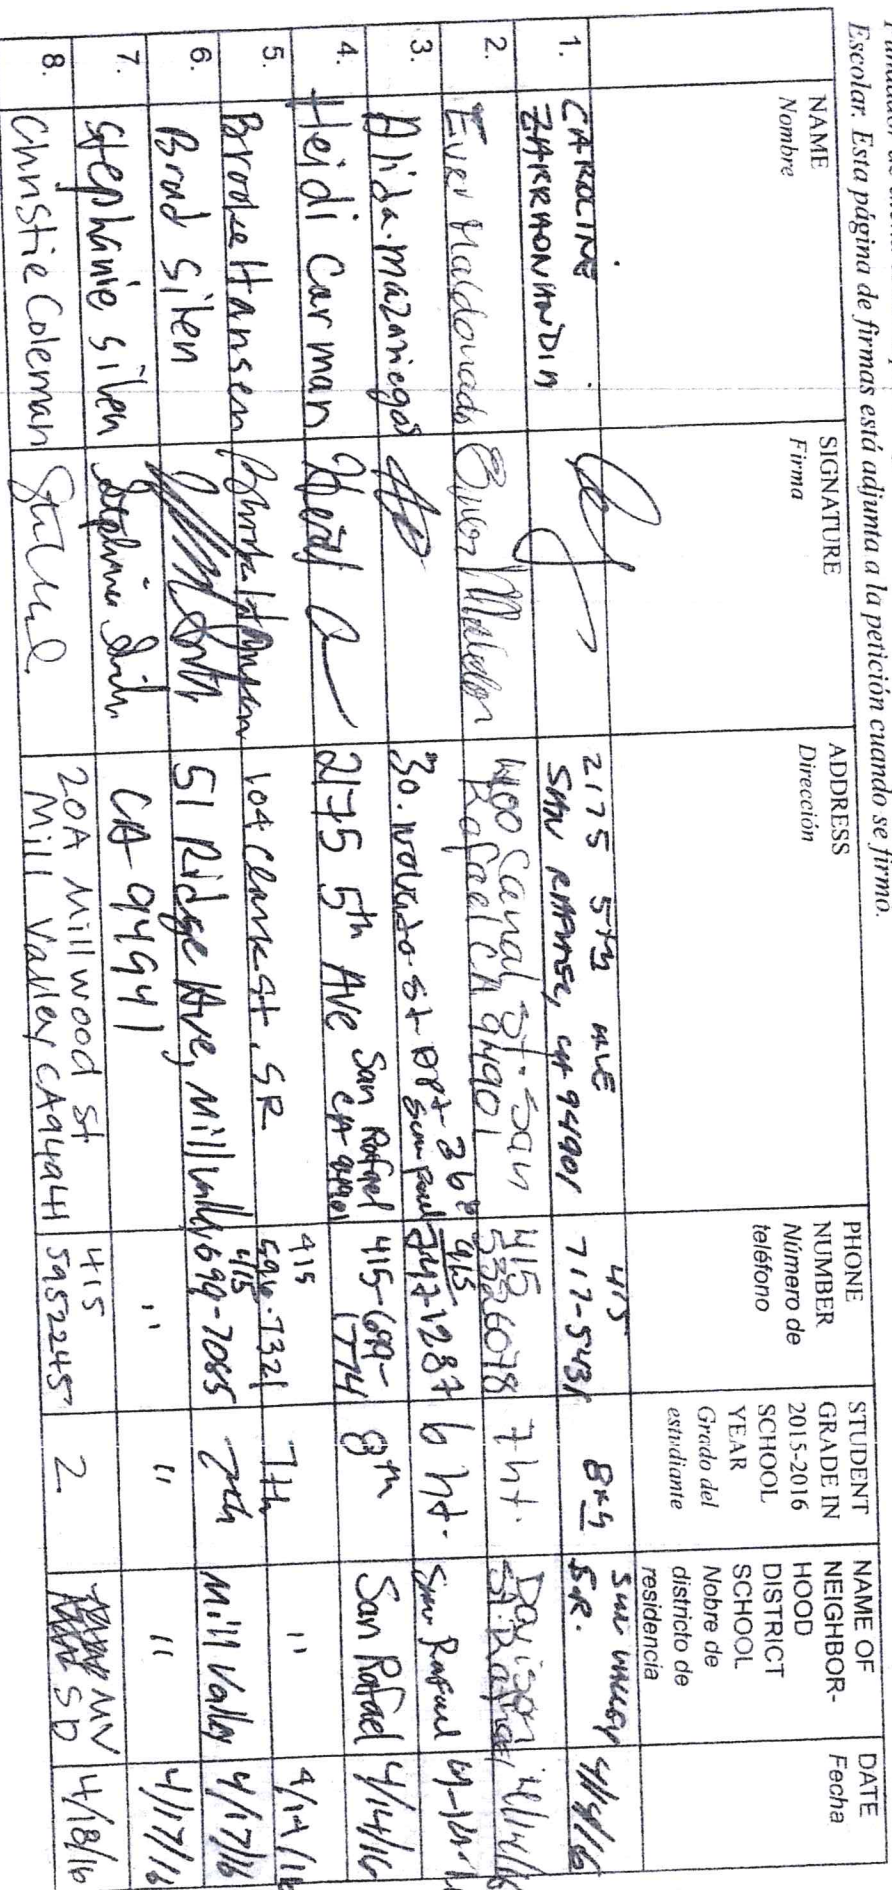 Escolar. Esta página de firmas está adjunta a la petición cuando se firmo.
NAME
Nombre
SIGNATURE
Firma
ADDRESS
Dirección
PHONE
NUMBER
Número de
teléfono
STUDENT
GRADE IN
2015-2016
SCHOOL
YEAR
Grado del
estudiante
NAME OF
NEIGHBOR-
HOOD
DISTRICT
SCHOOL
Nobre de
districto de
residencia
DATE
Fecha
1.
CAROLINE
2175 5th AVE
SAN RAFAEL, CA 94901
415
717-5431
8th
S.R.
4/14/16
2.
Ever Maldonado
Ever
400 Canal St. San
Rafael CA 94901
415
7ht.
Davison
4/14/16
3.
Alida. mazariegos
30. novato. st
415
6 ht.
San Rafael
4.
Heidi Carman
2175 5th Ave
San Rafael
CA 94901
415-699-
1774
8th
San Rafael
4/14/16
5.
Brooke Hansen
104 Clark St, SR
415
596-7321
7th
"
6.
Brad Silen
51 Ridge Ave, Mill Valley
415
699-7085
7th
Mill Valley
4/17/16
7.
Stephanie Silen
Stephanie Silen
CA 94941
"
"
"
4/17/16
8.
Christie Coleman
20A Millwood St
Mill Valley CA 94941
415
5952245
2
MV
SD
4/18/16